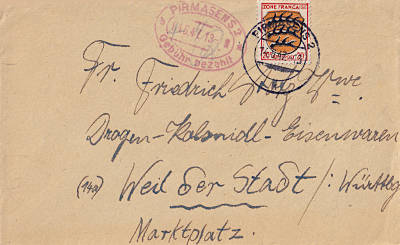 PIRMASENS 2
Gebühr bezahlt
ZONE FRANÇAISE
PIRMASENS 2
Fr. Friedrich Wwe
Drogen-Kolonidl-Eisenwaren
(14a) Weil der Stadt /: Württbg
Marktplatz.